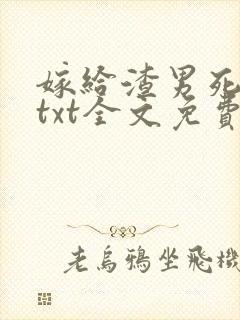 嫁给渣男死
txt全文免費
老烏鴉坐飛機